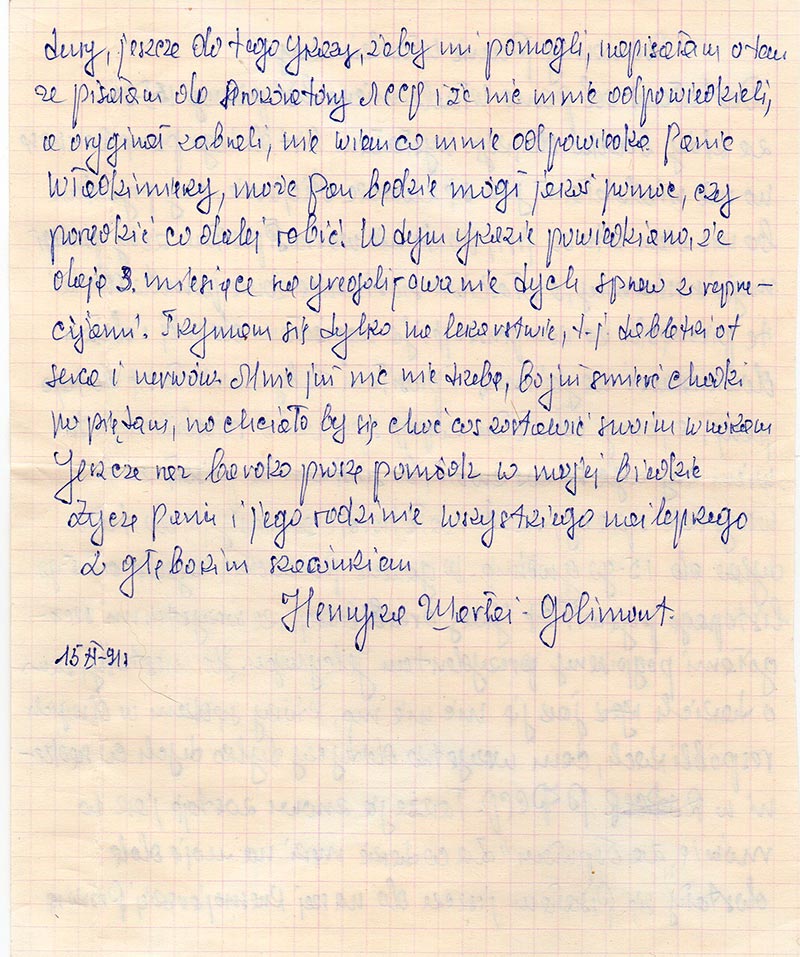 tury, jeszcze do tego ykazy, żeby mi pomogli, napisałam o tem
że pisałam do Prokóratóry ЛССР i że nic mnie odpowiedzieli,
a oryginał zabrali, nie wiem co mnie odpowiedzą Panie
Włodzimieży, może Pan będzie mógł jakoś pomoc, czy
poradzić co dalej robić. W tym ykazie powiedziano, że
dają 3. miesięce na yregolirowanie tych spraw z repre-
cijami. Trzymam się tylko na lekarstwie, t-j tabletki ot
serca i nerwów. Mnie już nic nie trzeba, bo już śmierć chodzi
po piętam, no chciało by się choć coś zostawić swoim wnókam
Jeszcze raz bardzo proszę pomódz w mojej biedzie
Życzę panu i jego rodzinie wszystkiego najlepszego
z głębokim szacunkiem
Henryka - Golimont.
15 XI-91r